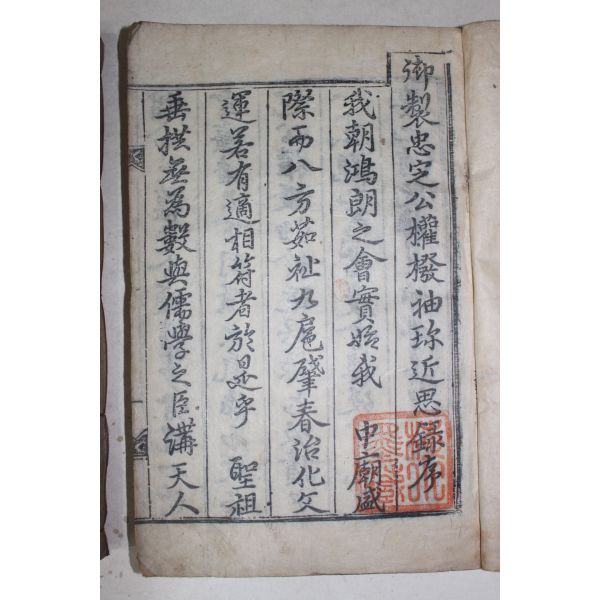 御製忠定公權橃袖珎近思錄序
我朝鴻朗之會實始我　中廟盛
際而八方茹祉九扈肇春治化文
運若有適相符者於是乎　聖祖
垂拱無為數與儒學之臣講天人